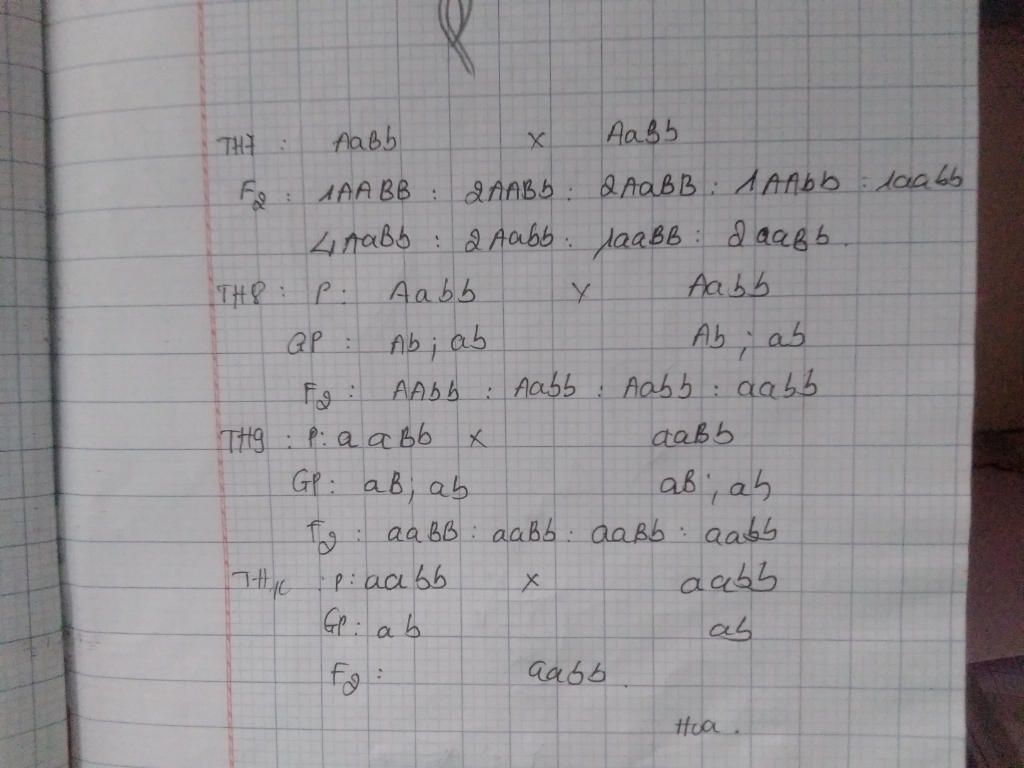 TH7 : AaBb x AaBb
F2 : 1AABB : 2AABb : 2AaBB : 1AAbb : 1aabb
4AaBb : 2Aabb : 1aaBB : 2aaBb.
TH8 : P : Aabb x Aabb
GP : Ab ; ab Ab ; ab
F2 : AAbb : Aabb : Aabb : aabb
TH9 : P : aaBb x aaBb
GP : aB ; ab aB ; ab
F2 : aaBB : aaBb : aaBb : aabb
TH10 : P : aabb x aabb
GP : ab ab
F2 : aabb.
Hoa.